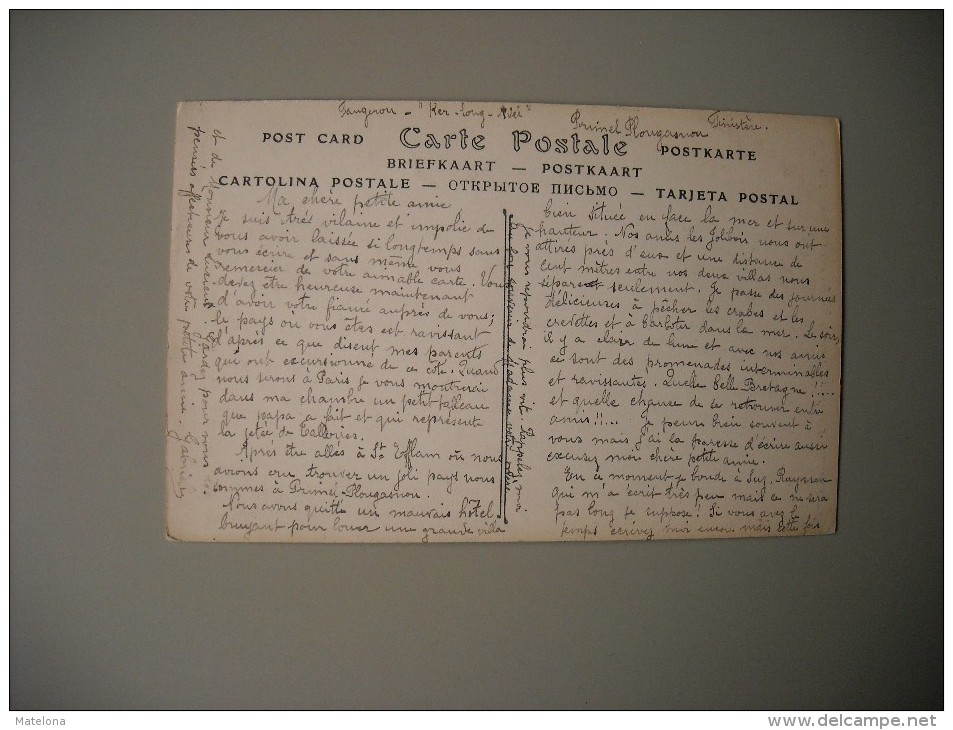 Faugeron - "Ker-Long-
Primel Plougasnou
Finistère.
POST CARD Carte Postale POSTKARTE
BRIEFKAART — POSTKAART
CARTOLINA POSTALE — ОТКРЫТОЕ ПИСЬМО — TARJETA POSTAL
Ma chère petite amie
Je suis très vilaine et impolie de
vous avoir laissée si longtemps sans
vous écrire et sans même vous
remercier de votre aimable carte. Vous
devez être heureuse maintenant
d'avoir votre fiancé auprès de vous;
le pays où vous êtes est ravissant
d'après ce que disent mes parents
qui ont excursionné de ce côté. Quand
nous serons à Paris je vous montrerai
dans ma chambre un petit tableau
que papa a fait et qui représente
la jetée de Talloires.
Après être allés à St Efflam où nous
avions cru trouver un joli pays nous
sommes à Primel-Plougasnou.
Nous avons quitté un mauvais hôtel
bruyant pour louer une grande villa
bien située en face la mer et sur une
hauteur. Nos amis les Jolibois nous ont
attirés près d'eux et une distance de
cent mètres entre nos deux villas nous
séparent seulement. Je passe des journées
délicieuses à pêcher les crabes et les
crevettes et à barboter dans la mer. Le soir,
il y a clair de lune et avec nos amis
ce sont des promenades interminables
et ravissantes. Quelle belle Bretagne !....
et quelle chance de se retrouver entre
amis!!... Je pense bien souvent à
vous mais j'ai la paresse d'écrire aussi
excusez moi chère petite amie.
En ce moment je boude à Suz.
qui m'a écrit très peu mais ce ne sera
pas long je suppose! Si vous avez le
temps écrivez moi encore mais cette fois
je vous répondrai plus vite. Rappelez moi
au bon souvenir de Madame votre mère
et de Monsieur Lucien. Gardez pour vous les
pensées affectueuses de votre petite amie. Gabrielle
Matelona
www.delcampe.net